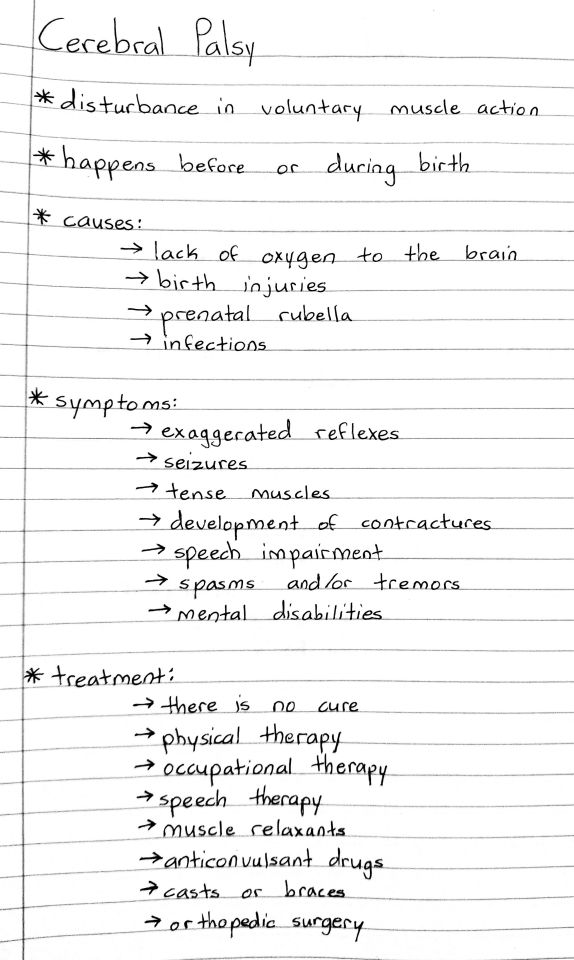 Cerebral Palsy
* disturbance in voluntary muscle action
* happens before or during birth
* causes:
→ lack of oxygen to the brain
→ birth injuries
→ prenatal rubella
→ infections
* symptoms:
→ exaggerated reflexes
→ seizures
→ tense muscles
→ development of contractures
→ speech impairment
→ spasms and/or tremors
→ mental disabilities
* treatment:
→ there is no cure
→ physical therapy
→ occupational therapy
→ speech therapy
→ muscle relaxants
→ anticonvulsant drugs
→ casts or braces
→ orthopedic surgery